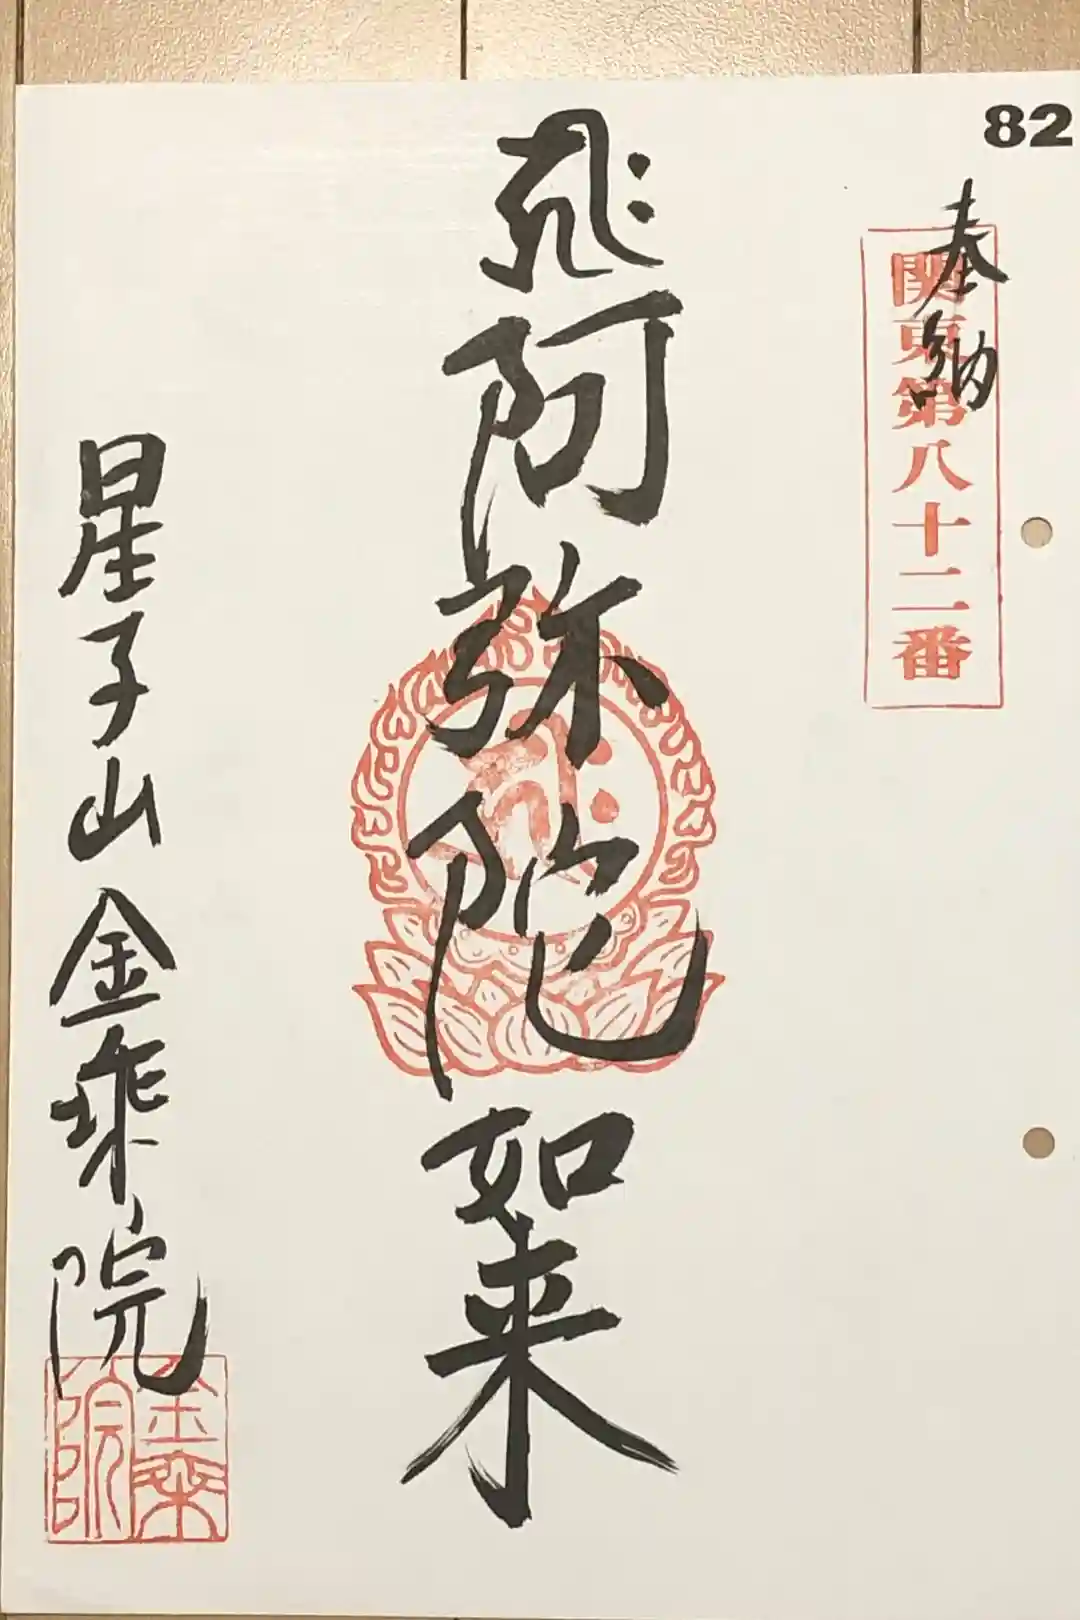 82
奉納
関東第八十二番
阿弥陀如来
星子山金乗院
金乗院